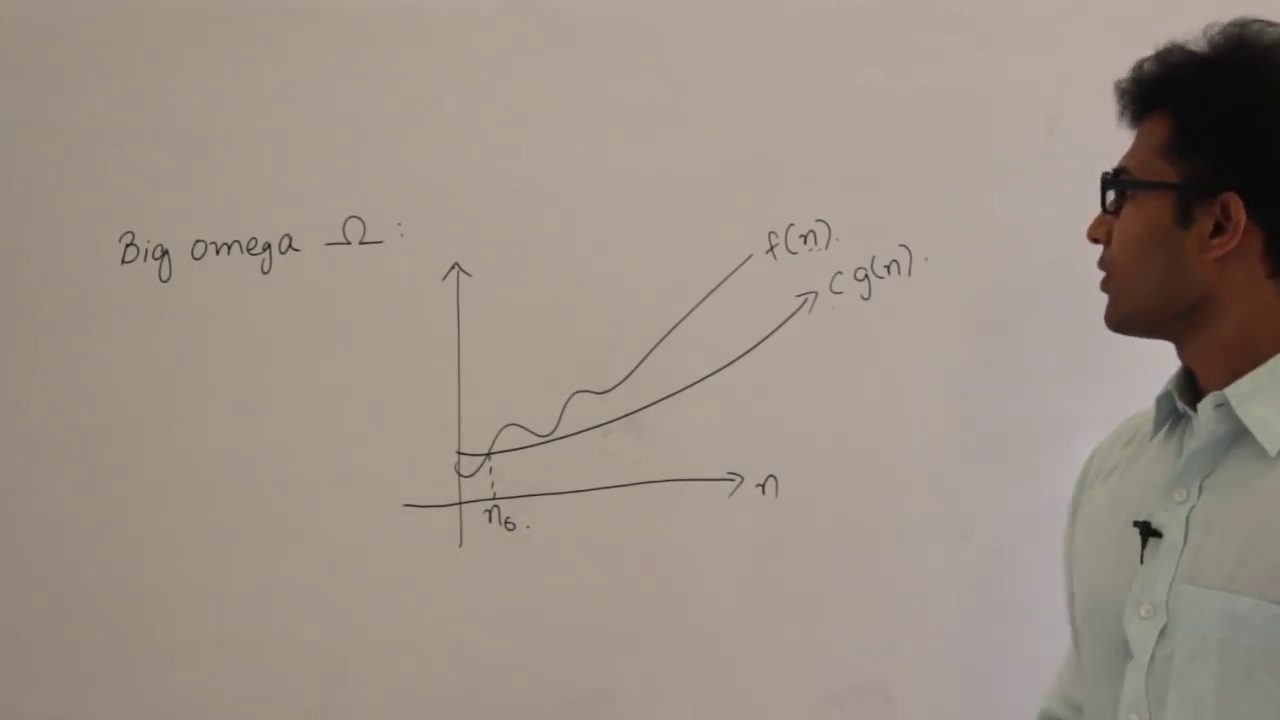 Big omega Ω :
f(n).
c g(n).
n
n₀.